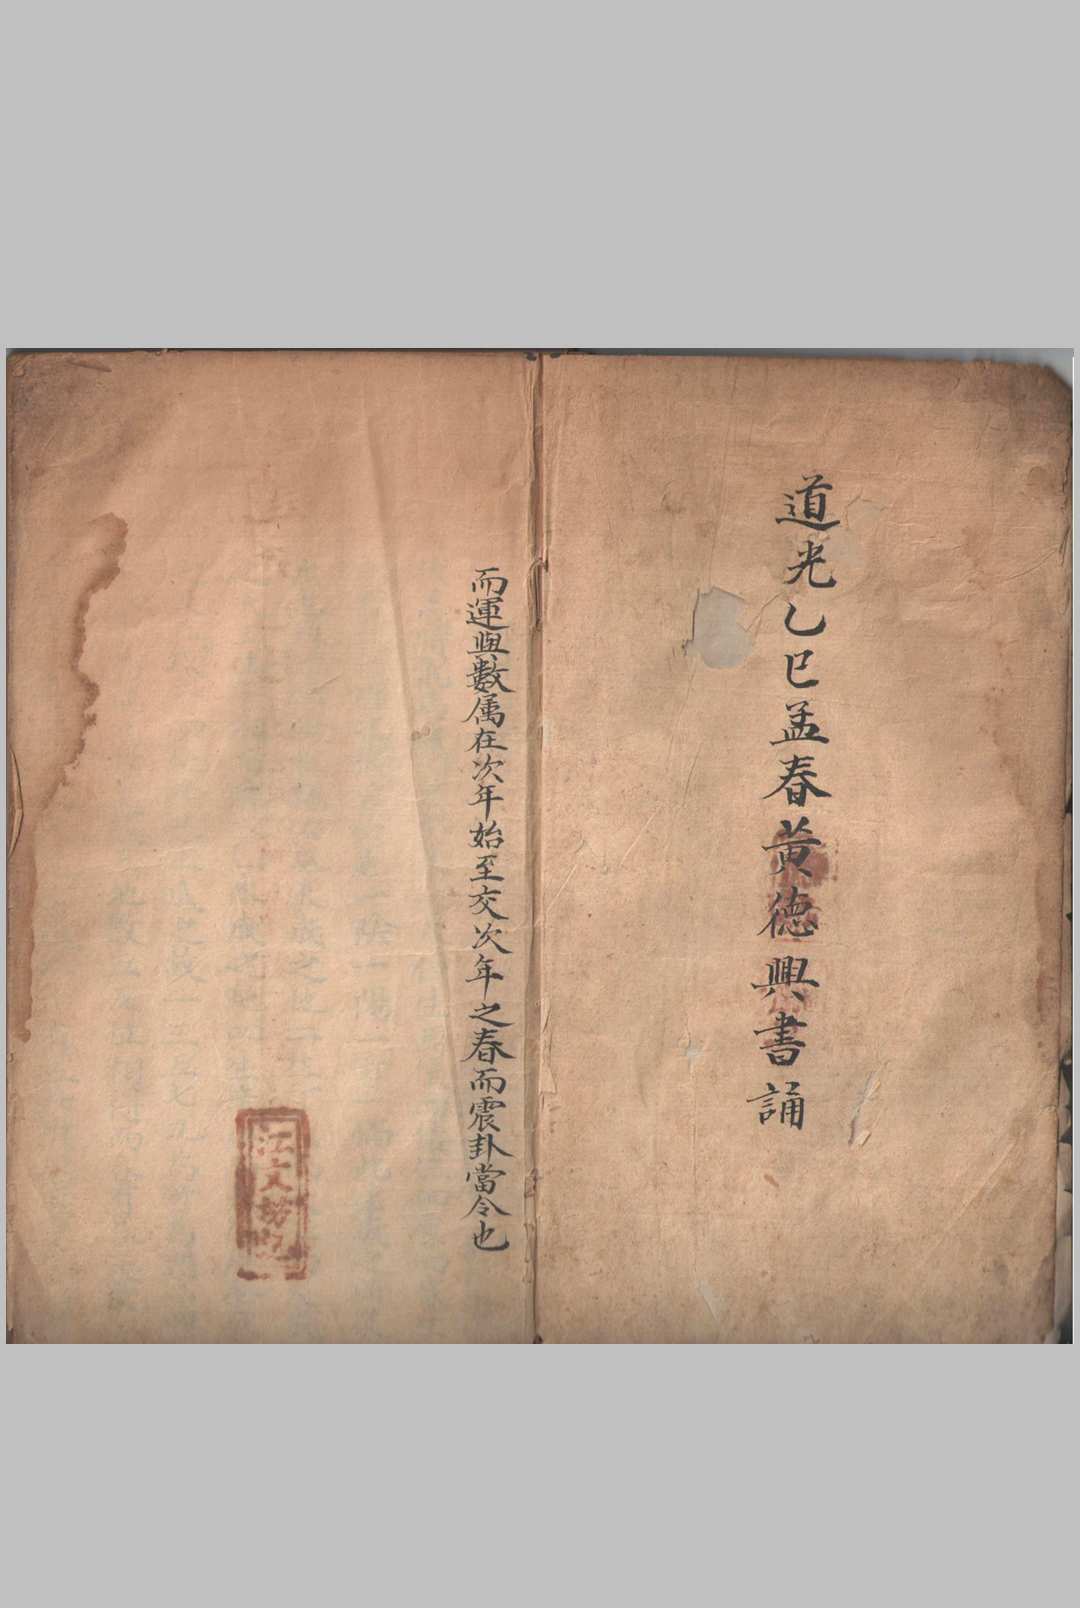 道光乙巳孟春黃德興書誦
而運與數属在次年始至交次年之春而震卦當令也
江文坊記